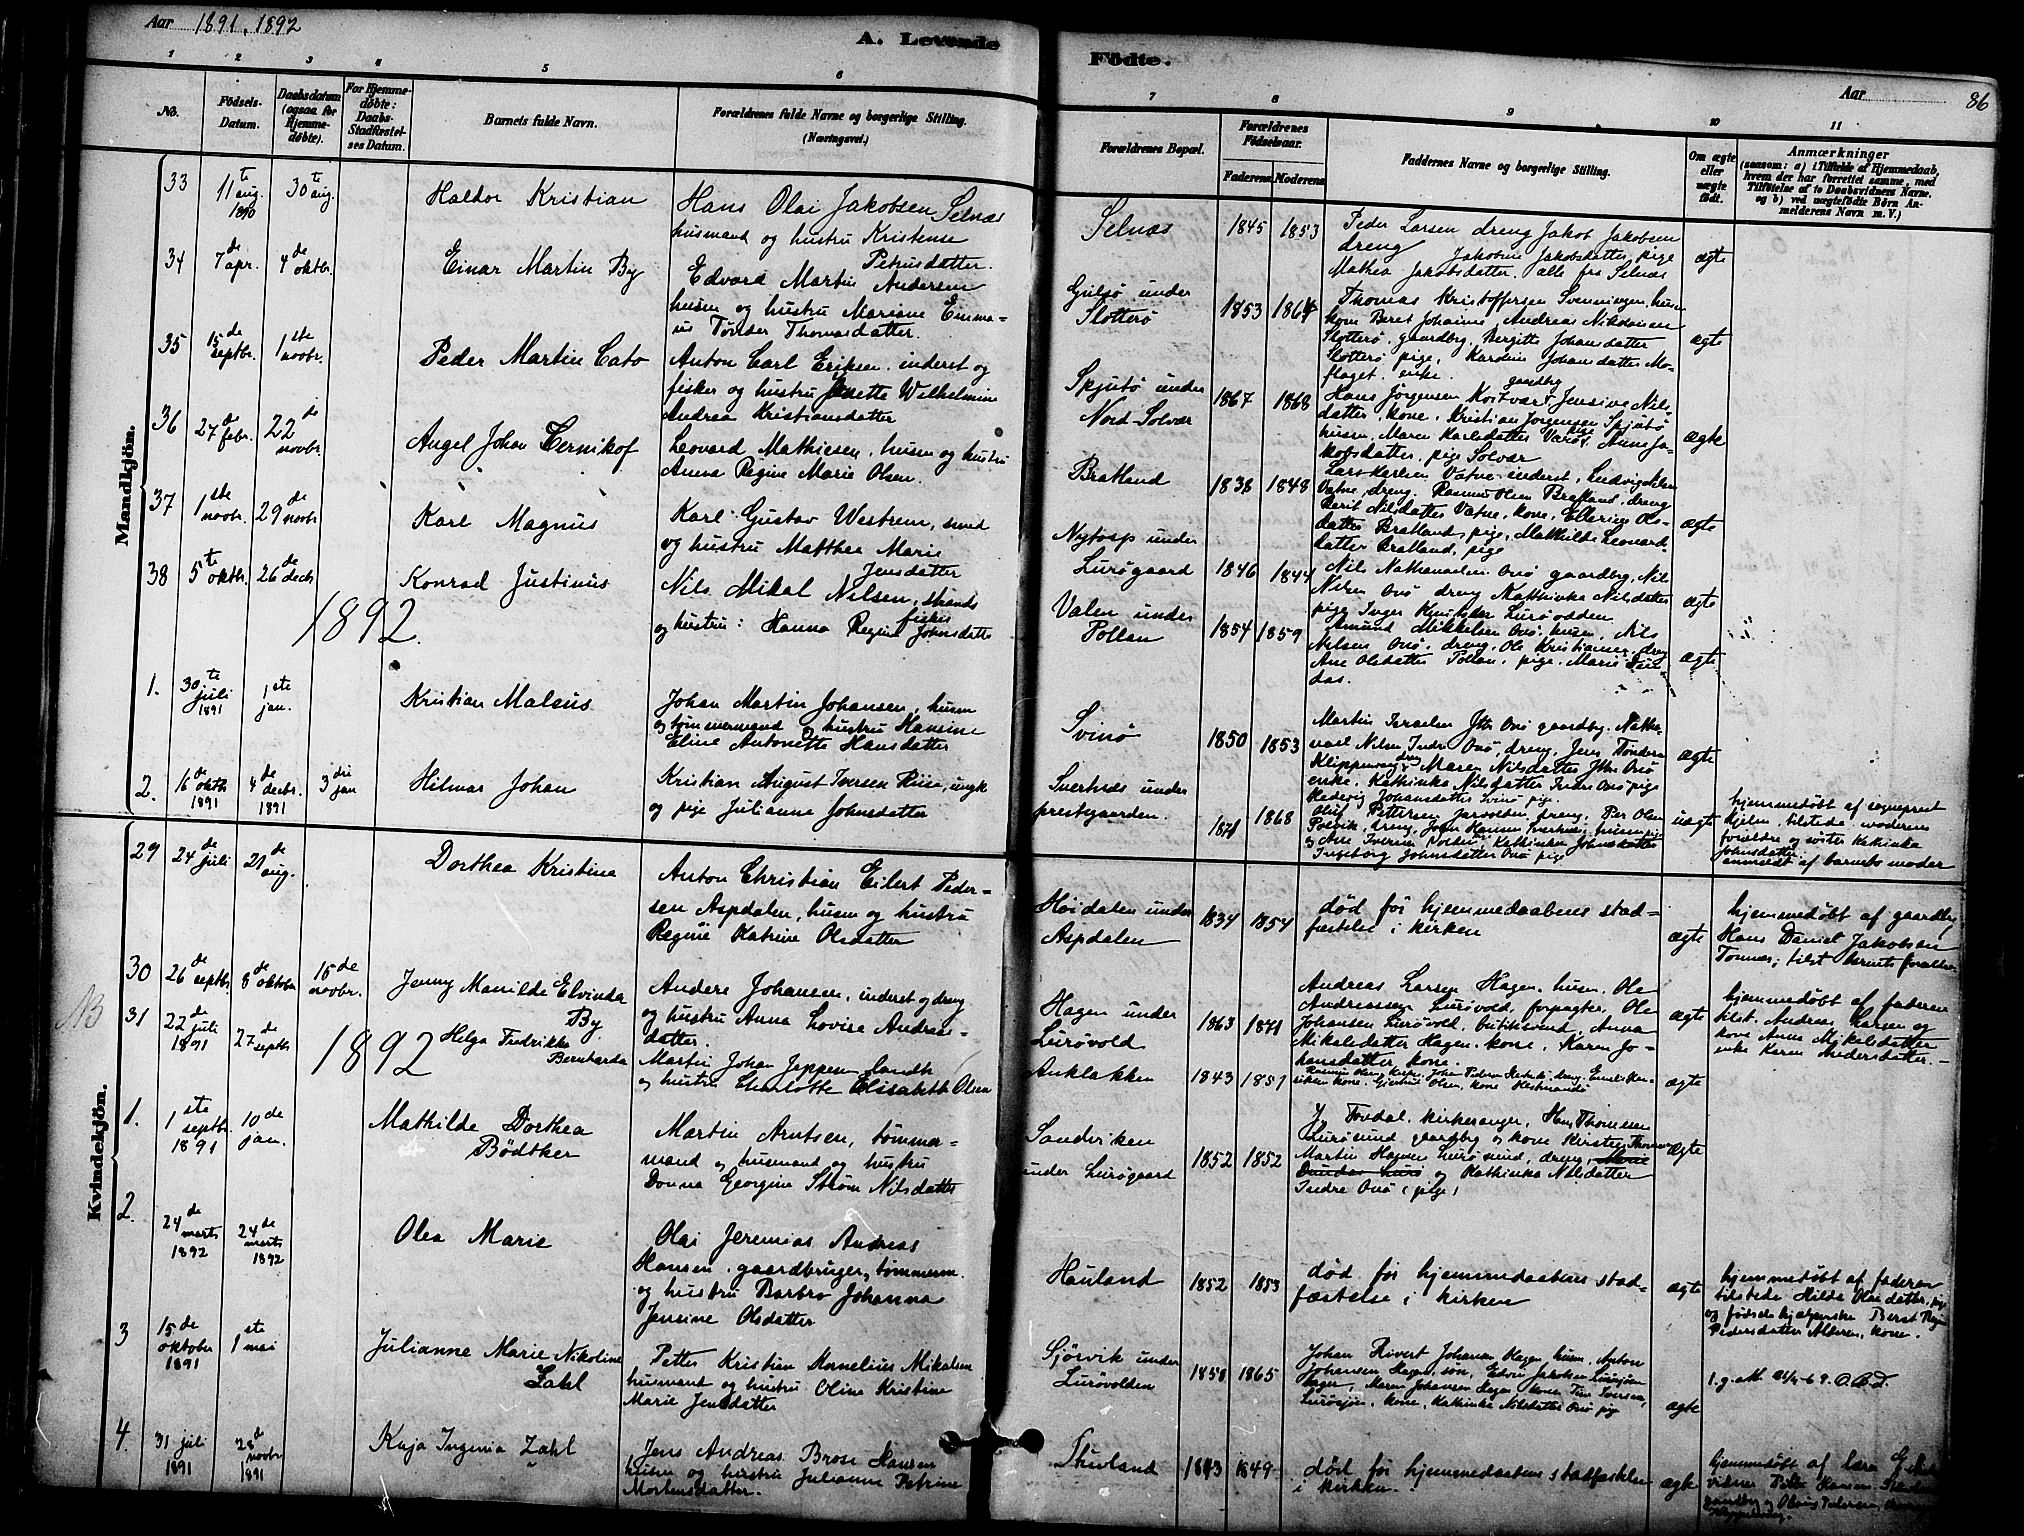 Aar 1891, 1892
A. Levende
Fødte.
Aar
86
1
2
3
4
5
6
7
8
9
10
11
No.
Fødsels-
Datum.
Daabsdatum
(ogsaa for
Hjemme-
døbte).
For Hjemme-
døbte:
Daabs-
Stadfæstel-
ses Datum.
Barnets fulde Navn.
Forældrenes fulde Navne og borgerlige Stilling.
(Næringsvei.)
Forældrenes Bopæl.
Forældrenes
Fødselsaar.
Faderens
Moderens
Faddernes Navne og borgerlige Stilling.
Om ægte
eller
uægte
født.
Anmærkninger
(saasom: a) i Tilfælde af Hjemmedaab,
hvem der har forrettet samme, med
Tilføielse af to Daabsvidners Navne.
og b) ved uægtefødte Børn An-
melderens Navn m. V.)
Mandkjön.
33
11te aug. 1890
30te aug.
Haldor Kristian
Hans Olai Jakobsen Selnæs
husmand og hustru Kristense
Petrusdatter.
Selnæs
1845
1853
Peder Larsen dreng Jakob Jakobsen
dreng Jakobine Jakobsdatter pige
Mathea Jakobsdatter. alle fra Selnæs
ægte
34
7de apr.
4de oktbr.
Einar Martin By
Edvard Martin Andersen
husm og hustru Mariane Emma-
us Tønder Thomasdatter.
Gulsø under
Slotterø
1853
1864
Thomas Kristoffersen Svenningen, husm
kone Beret Johanne, Andreas Nilsdansen
Slotterø, gaardbr, Bergitte Johansdatter
Slotterø pige, Karoline Johansdatter Mo-
flaget. enke.
ægte
35
15de septbr.
1ste novbr.
Peder Martin Cato
Anton Carl Eriksen. inderst og
fisker og hustru Janette Wilhelmine
Andrea Kristiansdatter
Skjutø under
Nord Solvær
1867
1868
Hans Jørgensen Kvitvær, Jensine Nils-
gaardbr
datter, kone, Kristian Jørgensen Skjutø
husm, Maren Karlsdatter Varø, Anne Ja-
pige
kobsdatter, pige Solvær
ægte
36
27de febr.
22de novbr.
Angel Johan Ternikof
Leonard Mathiesen, husm og hustru
Anna Regine Marie Olsen.
Bratland
1836
1848
Lars Karlsen Vatne inderst, Ludvig Nilsen
Vatne, dreng. Rasmus Olsen Bratland, dreng
Berit Nilsdatter Vatne, kone, Ellerine Ols-
datter Bratland, pige, Mathilde Leonard-
datter Bratland, pige
ægte
37
1ste novbr
29de novbr
Karl Magnus
Karl Gustav Westrem, smed
og hustru Matthea Marie
Jensdatter
Nytorp under
Lurøgaard
1846
1844
Nils Nathanaelsen Onø gaardbr, Nils
Nilsen Onø dreng Kathinka Nilsdatter
pige Inger Lurøvolden
ægte
38
5te oktbr.
26de decb
Konrad Justinus
Nils Mikal Nilsen, strands
fisker
og hustru: Hanna Regine Johnsdatter
Valen under
Pollen
1854
1859
Amund Mikkelsen Onø, husm, Nils
Nilsen Onø, dreng, Ole Kristiansen, dreng
Ane Olsdatter Pollen, pige. Marie Dun-
das.
ægte.
1892.
1.
30te juli 1891
1ste jan.
Kristian Maleus
Johan Martin Johansen, husm
og tømmermand og hustru Hansine
Eline Antonette Hansdatter
Svinø
1850
1853
Martin Israelsen Ytre Onø gaardbr. Natha-
nael Nilsen Indre Onø, dreng, Jens Tønder
Klippenvaag, dreng Maren Nilsdatter Ytre Onø
enke. Kathinka Nilsdatter Indre Onø pige
Hedevig Johansdatter Svinø pige.
ægte
2.
16de oktbr 1891
4de decbr. 1891
3die jan
Hilmar Johan
Kristian August Iversen Riise, ungk
og pige Julianne Johnsdatter
Sverhus under
prestegaarden.
1871
1868
Oluf Pettersen, dreng, Per Olsen
dreng, John Hansen, husm
og Ane Iversen, Kathinka Johnsdatter
Ingeborg Johnsdatter Onø pige
uægte
hjemmedøbt af sogneprest
Kjelen, tilstede. moderens
forældre og søster Kathinka
Johnsdatter.
anmeldt af barnets moder
Kvindekjön.
29
24de juli
21de aug.
Dorthea Kristina
Anton Christian Eilert Peder-
sen Aspdalen, husm og hustru
Regine Katrine Olsdatter
Høidalen under
Aspdalen
1834
1854
død før hjemmedaabens stad-
fæstelse i kirken
ægte
hjemmedøbt af gaardbr
Hans Daniel Jakobsen
Tonnes; tilst. barnets forældre.
30
26de septbr.
8de oktober
15de novbr.
Jenny Marilde Elvinda
By
Anders Johansen, inderst og dreng
og hustru Anna Lovise Andreas-
datter.
Hagen under
Lurøvold
1863
1871
Andreas Larsen Hagen, husm, Ole
Andreassen Lurøvold, forpagter, Ole
Johansen Lurøvold, butiksvend, Anna
Mikalsdatter Hagen, kone, Karen Jo-
hansdatter kone.
ægte
hjemmedøbt af faderen
tilst. Andreas Larsen og
kone Anna Mikalsdatter
enke Karen Andersdatter.
NB
31
22de juli 1891
27de septbr
Helga Fredrikke
Bernharda
Martin Johan Jeppesen landh
og hustru Charlotte Elisabeth Olsen
Anklakken
1843
1851
ægte
1892
1.
1ste septbr. 1891
10de jan.
Mathilde Dorthea
Bödtker
Martin Arntsen, tømmer-
mand og husmand og hustru
Donna Georgine Strøm Nilsdatter
Sandviken
under Lurøgaard
1852
1852
J. Tovdal, kirkesanger, Hans Thomsen
Lurøsund gaardbr og kone Kirsten Thomsen
Martin Hansen Lurøsund, dreng, Marie
Dundas Lurø og Kathinka Nilsdatter
Indre Onø (pige)
ægte
2.
24de marts 1892
24de marts 1892
Olea Marie
Olai Jeremias Andreas
Hansen, gaardbruger, tømmerm
og hustru Barbro Johanna
Jensine Olsdatter
Hauland
1852
1853
død før hjemmedaabens stad-
fæstelse i kirken
ægte
hjemmedøbt af faderen
tilstede Hilde Olsdatter, pige
og fødselshjælperske Beret Regine
Pedersdatter Alderen, kone.
3
15de oktober 1891
1ste mai
Julianne Marie Nikoline
Zahl
Petter Kristian Kornelius Mikalsen
husmand og hustru Oline Kristine
Marie Jensdatter
Sjørvik under
Lurøvolden
1858
1865
Johan Rivert Johansen Hagen husm, Anton
Johansen Hagen, søn, Edvin Jakobsen Lurøsjøen
Hagen, Maren Johansen Hagen kone,
Lurøsjøen, kone, Kathinka Nilsdatter Onø pige
ægte
4.
31 juli 1891
28de novbr 1891
Kaja Ingenia Zahl
Jens Andreas Brose Hansen
husm og hustru Julianna Petrine
Mortensdatter.
Thusland
1843
1849
død før hjemmedaabens stadfæstelse
i kirken.
ægte
hjemmedøbt af
vidner Petter Hansen
gaardbr og Olaus Pedersen,